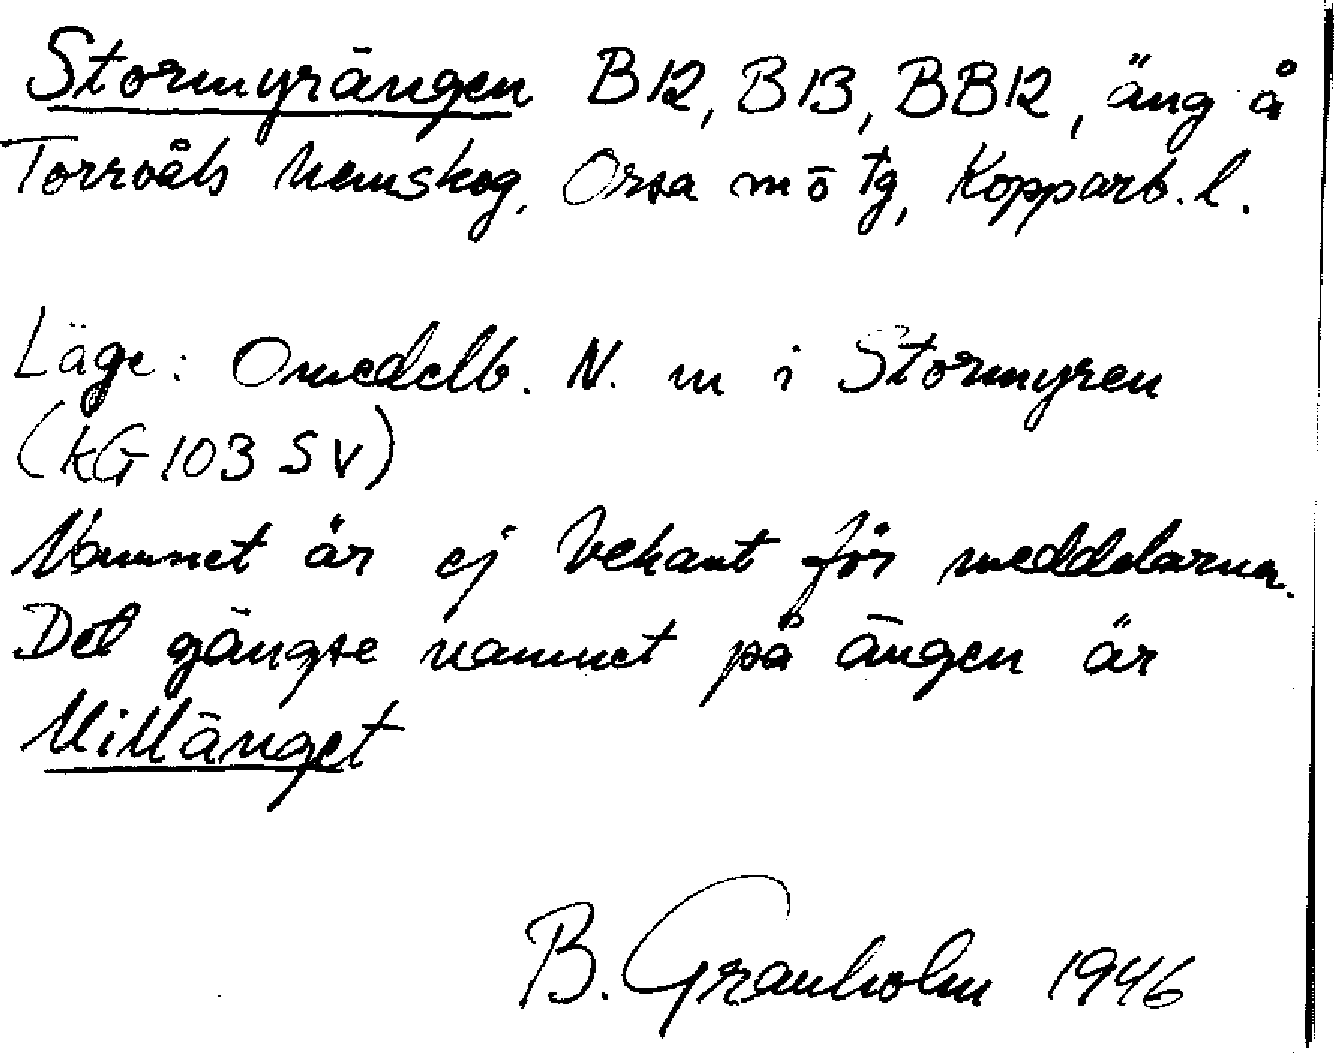 Stormyrängen B12, B13, BB12, äng å
Torrvåls hemskog, Orsa sn o tg, Kopparb. l.
Läge: Omedelb. N. m i Stormyren
(kG 103 SV)
Namnet är ej bekant för meddelarna.
Det gängse namnet på ängen är
Millänget
B. Granholm 1946